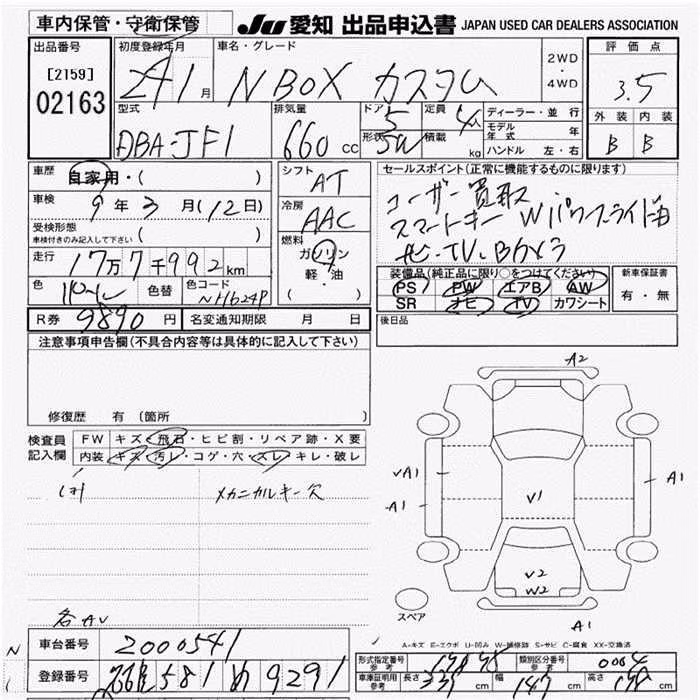 車内保管・守衛保管
JU 愛知 出品申込書 JAPAN USED CAR DEALERS ASSOCIATION
出品番号
[2159]
02163
初度登録年月
24 1 月
車名・グレード
N BOX カスタム
2WD
・
4WD
評価点
3.5
外装 内装
B B
型式
DBA-JF1
排気量
660 cc
ドア 5
形状 5W
定員 4人
積載 kg
ディーラー・並行
モデル年式 年
ハンドル 左・右
車歴
自家用・( )
車検
9 年 3 月 (12 日)
受検形態
車検付きのみ記入して下さい ( )
走行
17万7千992 km
色
色替
色コード
NH624P
シフト
AT
冷房
AAC
燃料
ガソリン
軽・油
( ・ )
セールスポイント(正常に機能するものに限ります)
ユーザー買取
スマートキー Wパワースライド
TV.Bカメラ
装備品(純正品に限り○をつけてください)
PS PW エアB AW
SR ナビ TV カワシート
新車保証書
有・無
R券 9890 円
名変通知期限 月 日
後日品
注意事項申告欄(不具合内容等は具体的に記入して下さい)
修復歴 有 (箇所
検査員
記入欄
FW キズ・飛石・ヒビ割・リペア跡・X要
内装 キズ・汚レ・コゲ・穴・スレ・キレ・破レ
メカニカルキー欠
各AV
A2
VA1
A1
V1
A1
V2
W2
A1
スペア
A-キズ E-エクボ U-凹み W-補修跡 S-サビ C-腐食 XX-交換済
車台番号
2000541
登録番号
581 め 9291
形式指定番号
参考
類別区分番号
参考
0004
車庫証明用
参考
長さ 339 cm
幅 147 cm
高さ cm